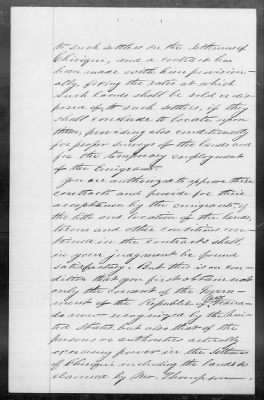 to such settlers on the Isthmus of
Chiriqui, and a contract has
been made with him provision-
ally, fixing the rates at which
such lands shall be sold or dis-
posed of, to such settlers, if they
shall conclude to locate upon
them, providing also conditionally
for proper surveys of the lands and
for the temporary employment
of the Emigrants.
You are authorized to approve these
contracts and provide for their
acceptance by the emigrants if
the title and location of the lands,
terms and other conditions con-
tained in the contracts shall,
in your judgment be found
satisfactory. But this is on con-
dition that you first obtain not
only the consent of the Govern-
ment of the Republic of New Grana-
da now recognized by the Uni-
ted States, but also that of the
persons or authorities actually
exercising power in the Isthmus
of Chiriqui including the lands so
claimed by Mr. Thompson